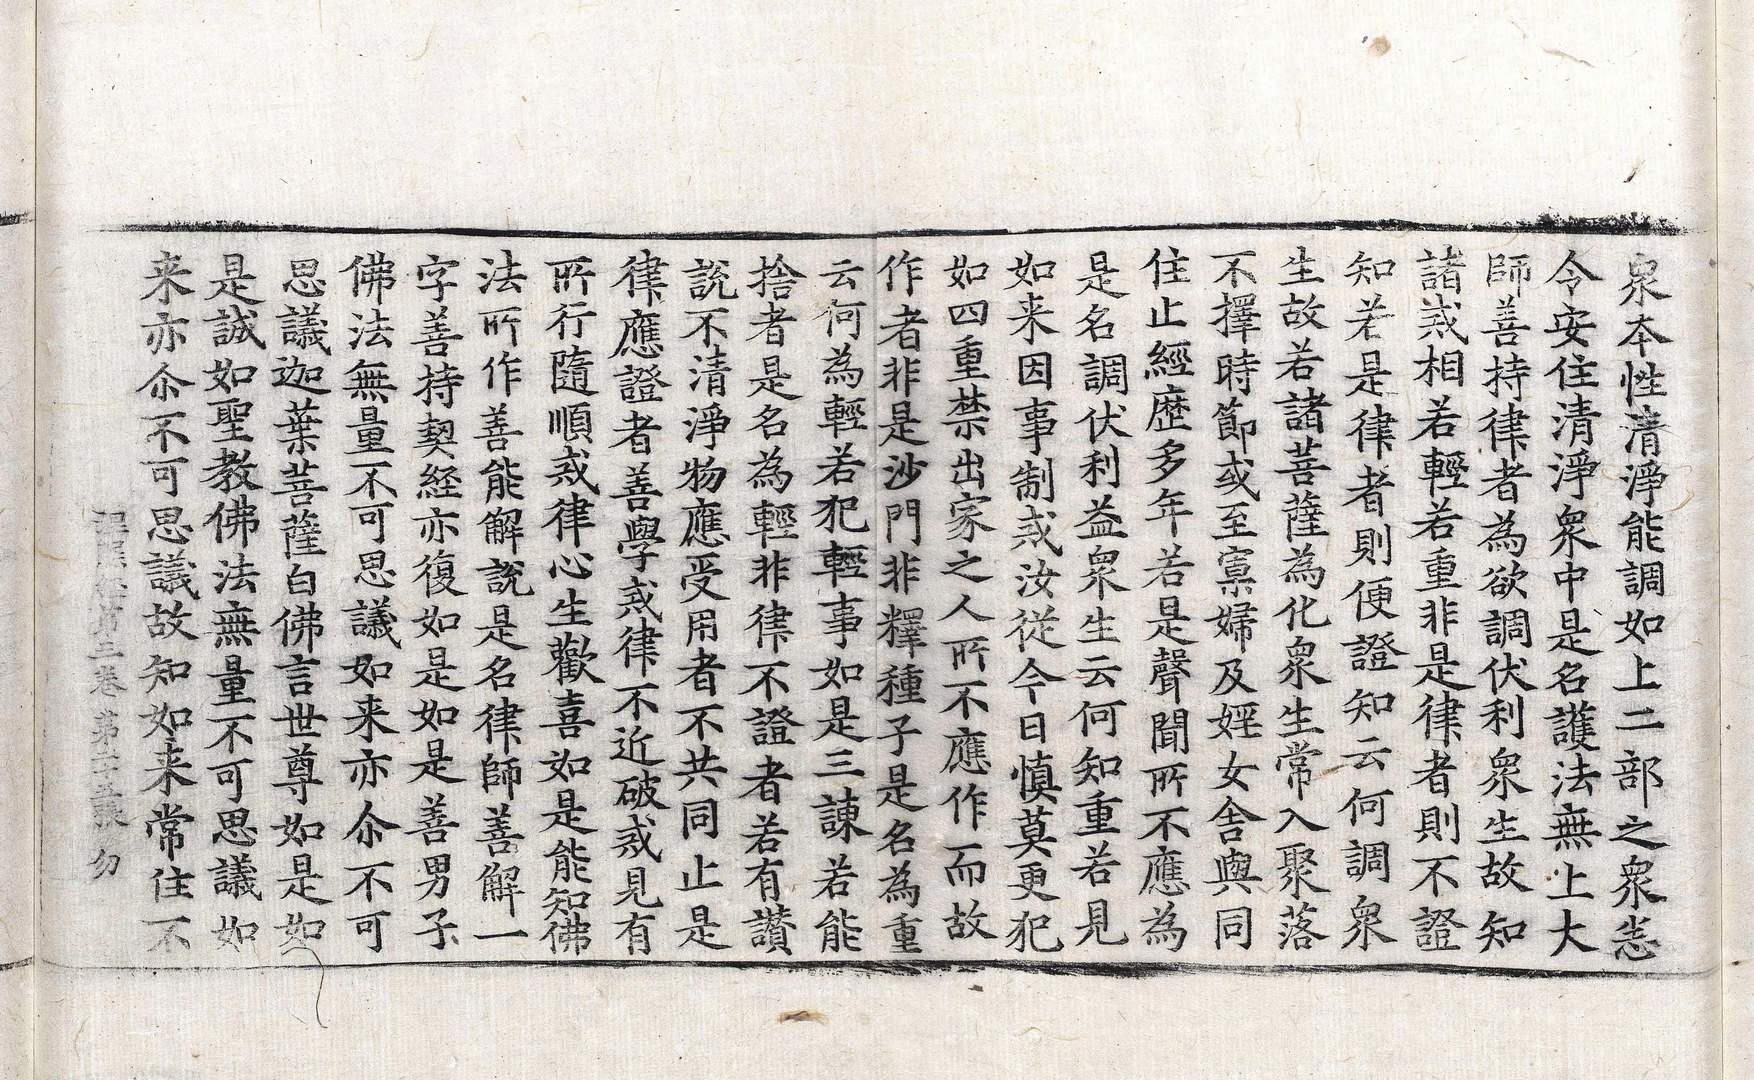 衆本性清淨能調如上二部之衆悉
令安住清淨衆中是名護法無上大
師善持律者為欲調伏利衆生故知
諸戒相若輕若重非是律者則不證
知若是律者則便證知云何調衆
生故若諸菩薩為化衆生常入聚落
不擇時節或至寡婦及婬女舍與同
住止經歷多年若是聲聞所不應為
是名調伏利益衆生云何知重若見
如来因事制戒汝從今日慎莫更犯
如四重禁出家之人所不應作而故
作者非是沙門非釋種子是名為重
云何為輕若犯輕事如是三諫若能
捨者是名為輕非律不證者若有讃
說不清淨物應受用者不共同止是
律應證者善學戒律不近破戒見有
所行隨順戒律心生歡喜如是能知佛
法所作善能解說是名律師善解一
字善持契経亦復如是如是善男子
佛法無量不可思議如来亦尒不可
思議迦葉菩薩白佛言世尊如是如
是誠如聖教佛法無量不可思議如
来亦尒不可思議故知如来常住不
涅槃経第三卷 第十五張 勿